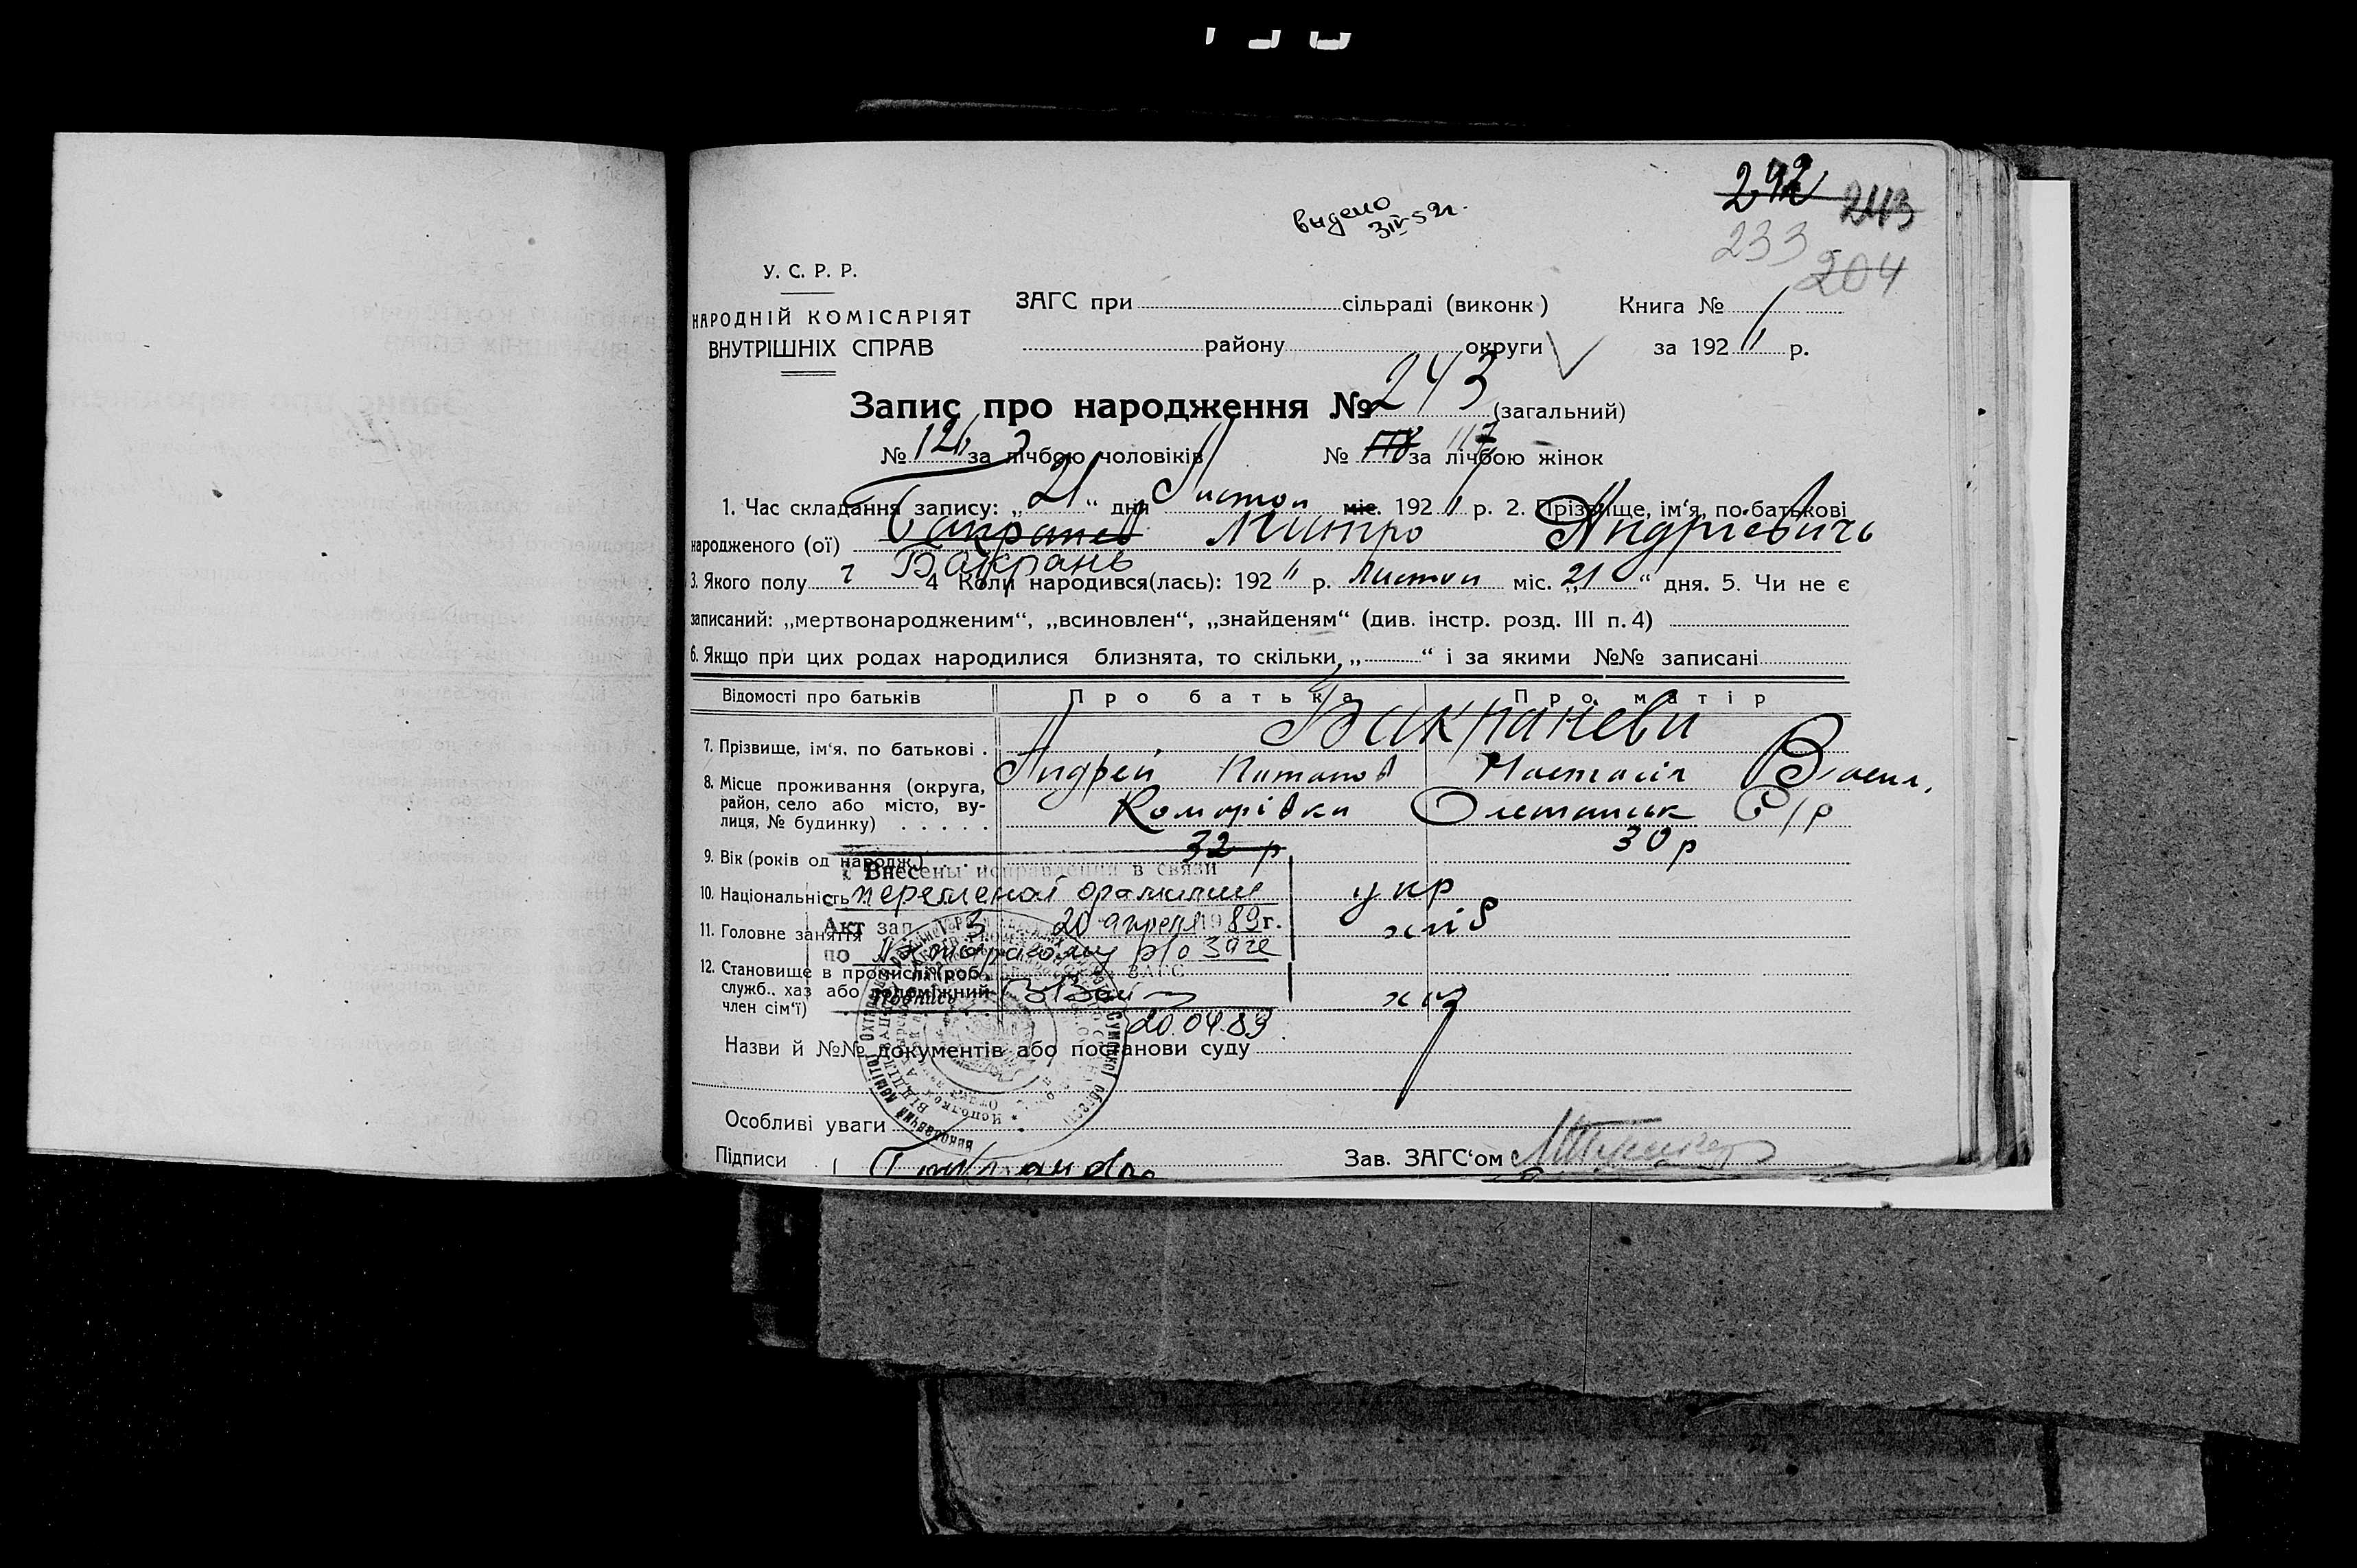 выдено
3 IV 52г.
242 243
233
204
У. С. Р. Р.
НАРОДНІЙ КОМІСАРІЯТ
ВНУТРІШНІХ СПРАВ
ЗАГС при сільраді (виконк)
Книга № 1
району округи
за 192 " р.
Запис про народження № 243 (загальний)
№ 126 за лічбою чоловіків № 118 117 за лічбою жінок
1. Час складання запису: „21“ дня Листоп міс. 192 " р. 2. Прізвище, ім‘я, по-батькові
народженого (ої) Бакранев Митро Андрієвичь
Бакрань
3. Якого полу ч 4 Коли народився(лась): 192 " р. Листоп міс. „21“ дня. 5. Чи не є
записаний: „мертвонародженим“, „всиновлен“, „знайденям“ (див. інстр. розд. III п. 4)
6. Якщо при цих родах народилися близнята, то скільки „ “ і за якими №№ записані
Відомості про батьків Про батька Про матір
7. Прізвище, ім‘я, по батькові . Бакраневи
Андрей Настасія Васил.
8. Місце проживання (округа,
район, село або місто, ву-
лиця, № будинку) . . . . . Комарівка С/р
9. Вік (років од народж.) . . . 32 р 30 р
Внесены исправления в связи
с переменой фамилии
Акт зап 3 20 апреля 1989г.
по р/о Загс
20.04.89
10. Національність укр
11. Головне заняття хліб
12. Становище в промислі (роб.
служб.. хаз або допоміжний
член сім‘ї) хаз
Назви й №№ документів або постанови суду
Особливі уваги
Підписи
Зав. ЗАГС‘ом